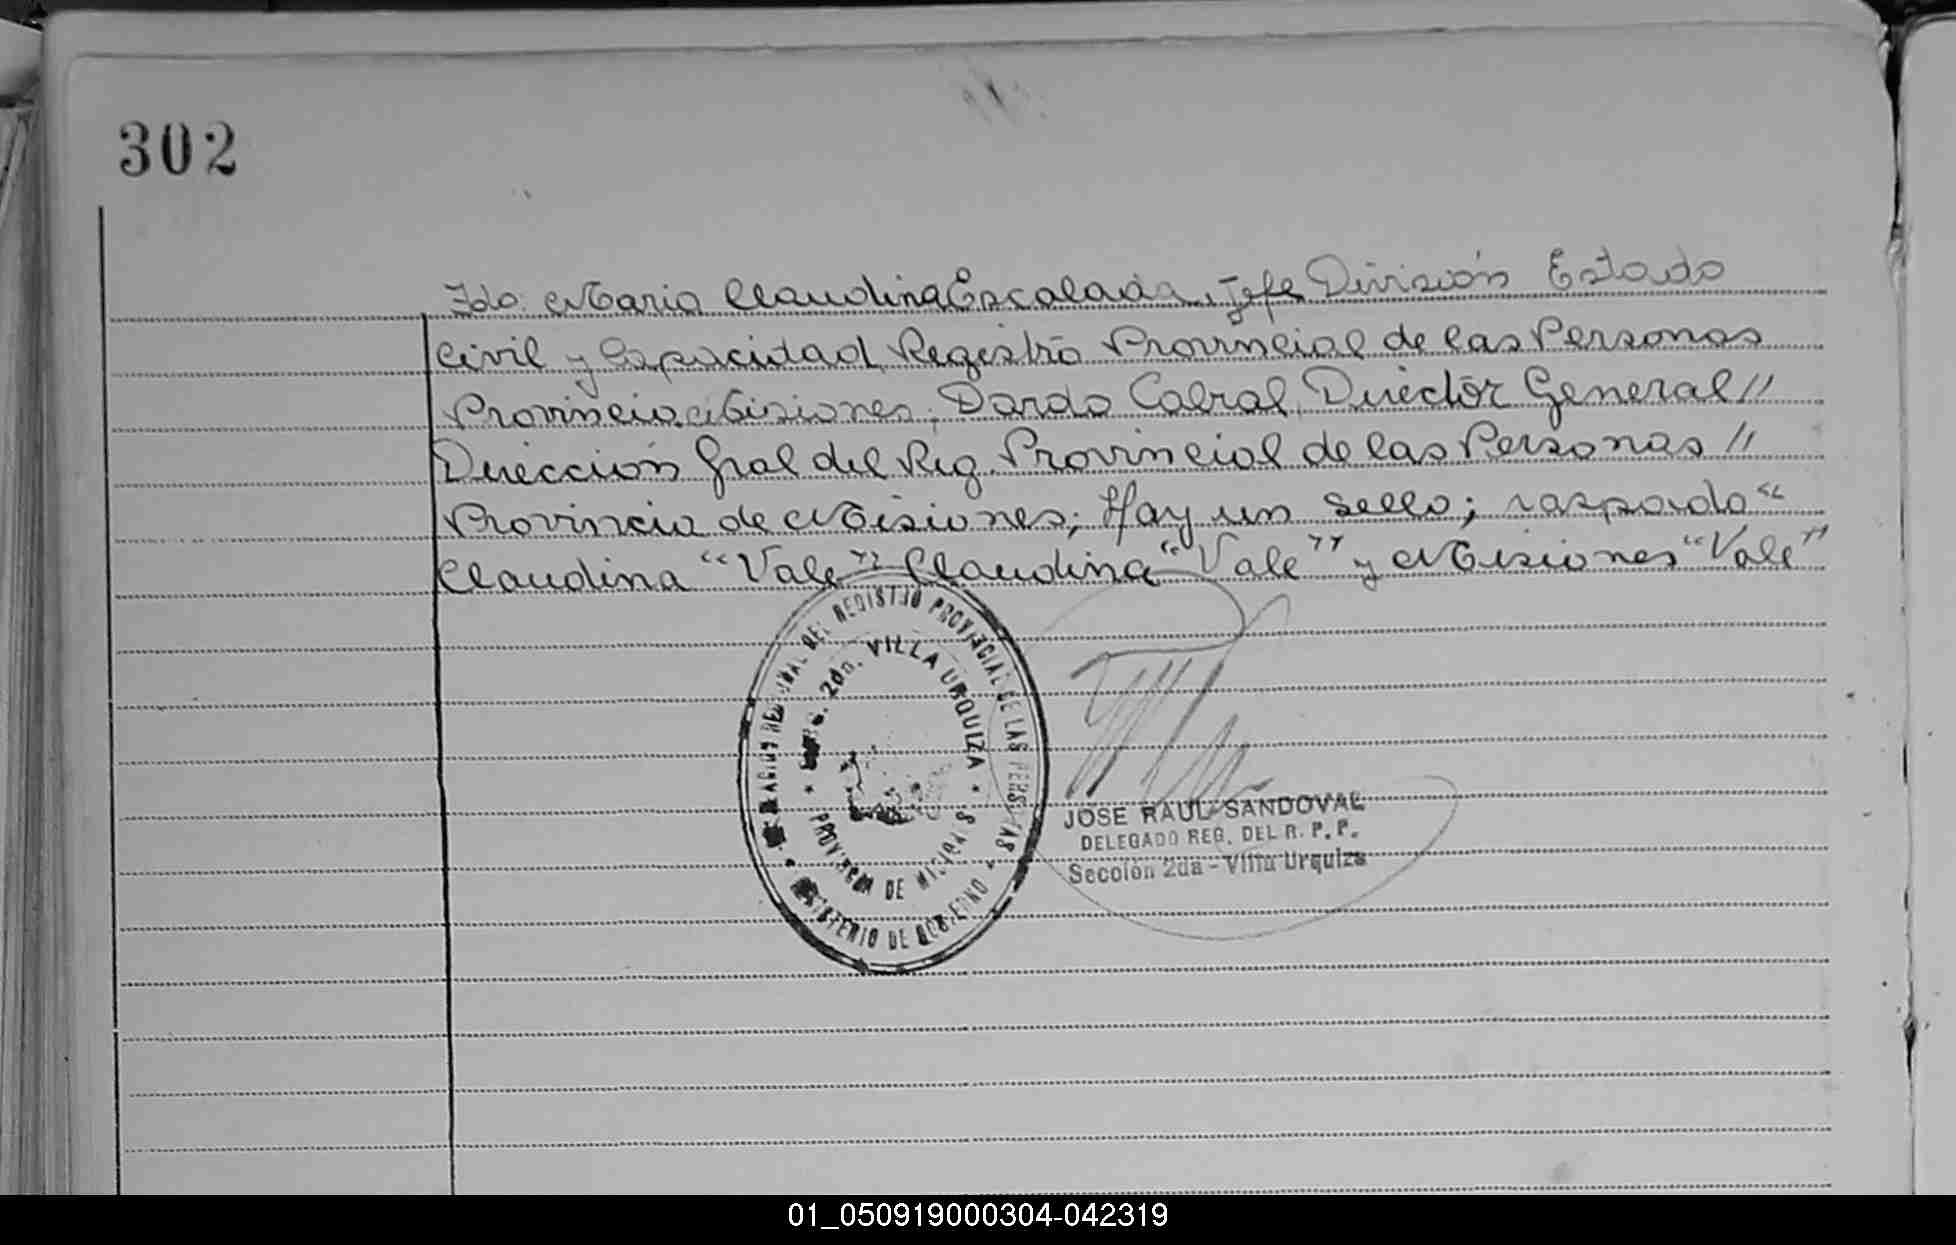 302
Fdo: Maria Claudina Escalada, Jefe División Estado
Civil y Capacidad, Registro Provincial de las Personas
Provincia Misiones, Dardo Cabral, Director General //
Dirección Gral del Reg. Provincial de las Personas //
Provincia de Misiones; Hay un sello; raspado "
Claudina "Vale" Claudina "Vale" y Misiones "Vale"
DEL REGISTRO PROVINCIAL DE LAS PERSONAS
2da. VILLA URQUIZA
PROVINCIA DE MISIONES
MINISTERIO DE GOBIERNO
JOSE RAUL SANDOVAL
DELEGADO REG. DEL R. P. P.
Sección 2da - Villa Urquiza
01_050919000304-042319